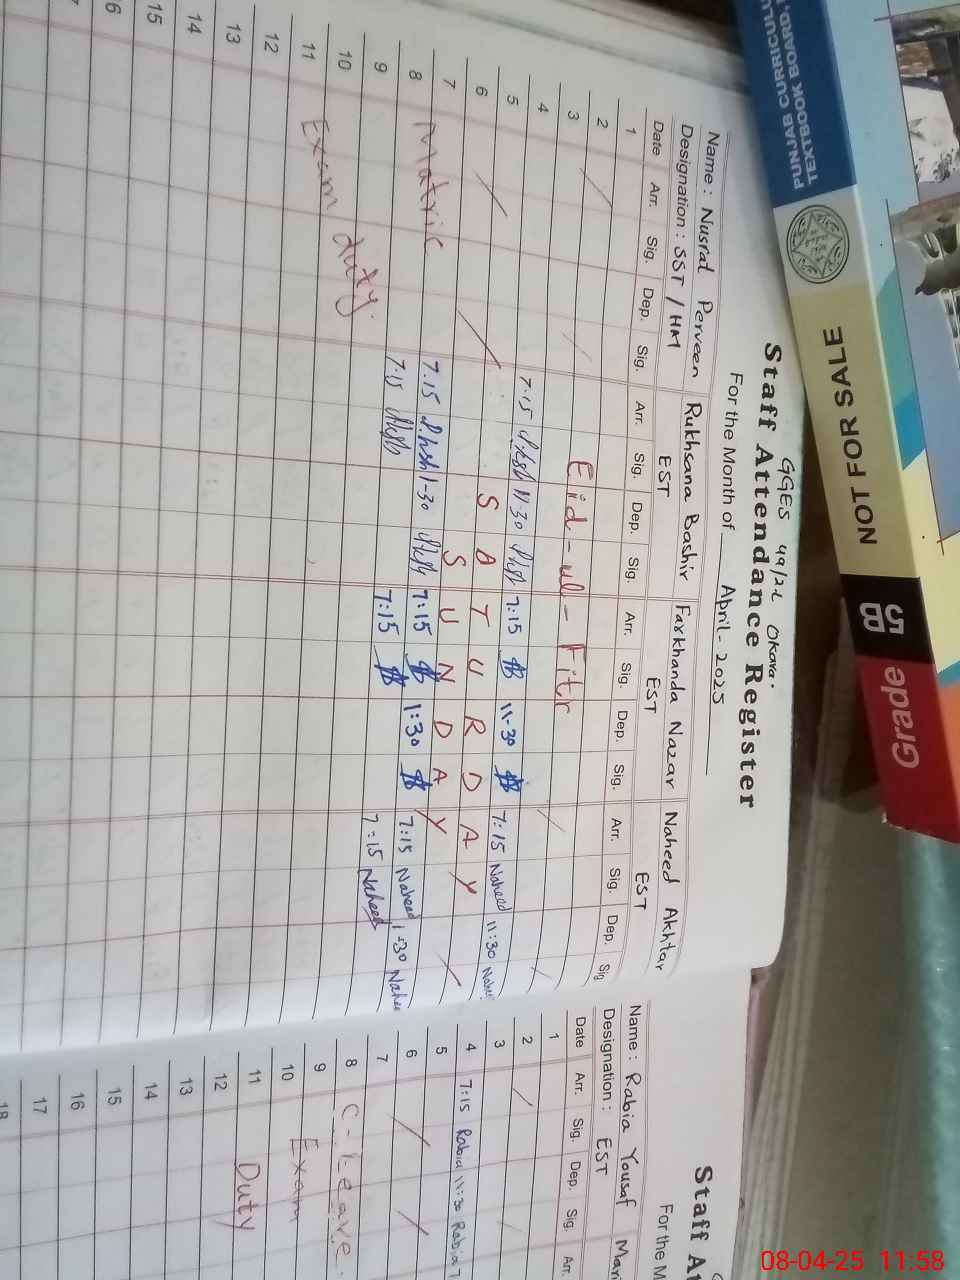 PUNJAB CURRICULU
TEXTBOOK BOARD,
NOT FOR SALE
5B
Grade
GGES 49/2-L Okara.
Staff Attendance Register
For the Month of April - 2025
Name : Nusrat Perveen Rukhsana Bashir Farkhanda Nazar Naheed Akhtar
Designation : SST / HM EST EST EST
Date Arr. Sig. Dep. Sig. Arr. Sig. Dep. Sig. Arr. Sig. Dep. Sig. Arr. Sig. Dep. Sig
1
2
3 Eid - ul - Fitr
4
5 7.15 11-30 7:15 11-30 7:15 Naheed 11:30
6 S A T U R D A Y
7 S U N D A Y
8 Matric 7.15 1-30 7:15 1:30 7:15 Naheed 1-30
9 7.15 7:15 7:15 Naheed
10 duty
11 Exam
12
13
14
15
Staff A
For the M
Name : Rabia Yousaf
Designation : EST
Date Arr. Sig. Dep. Sig. Arr.
1
2
3
4 7:15 Rabia 11:30 Rabia
5
6
7
8 C - Leave
9
10 Exam
11 Duty
12
13
14
15
16
17
18
08-04-25 11:58